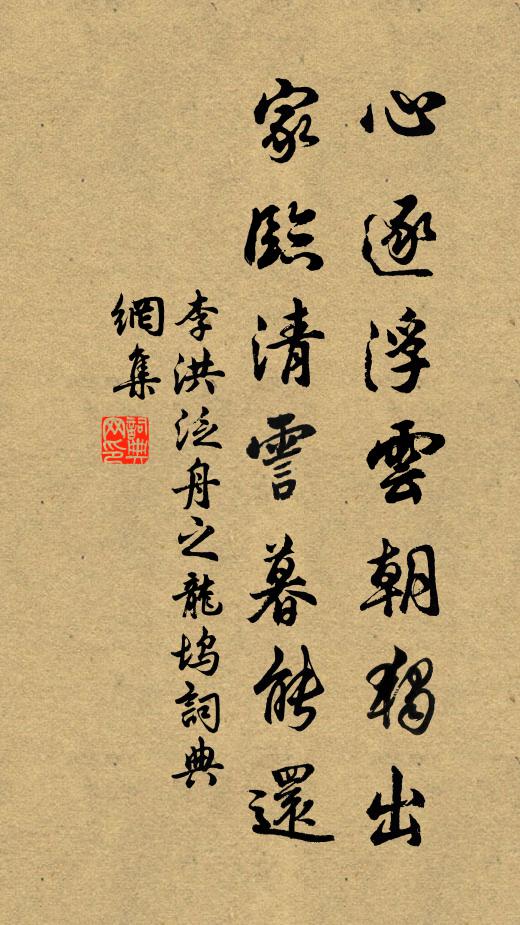 心逐浮雲朝獨出
家臨清霅暮能還
李洪泛舟之龍塢詞典
網集
詞典
网印